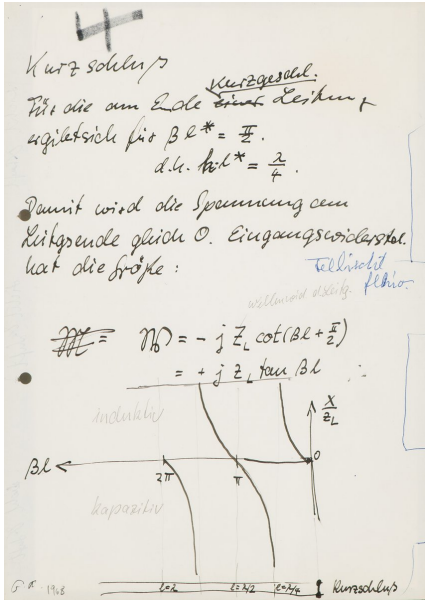 4
Kurzschluß
Kurzgeschl.
Für die am Ende einer Leitung
ergibt sich für βl* = π/2.
d.h. l* = λ/4.
Damit wird die Spannung am
Leitgsende gleich 0. Eingangswiderstd.
hat die Größe:
wellenwid d. Leitg.
= 𝔚 = - j Z_L cot(βl + π/2)
= + j Z_L tan βl
induktiv
X/Z_L
βl
2π
π
0
kapazitiv
l=λ
l=λ/2
l=λ/4
Kurzschluß
1963